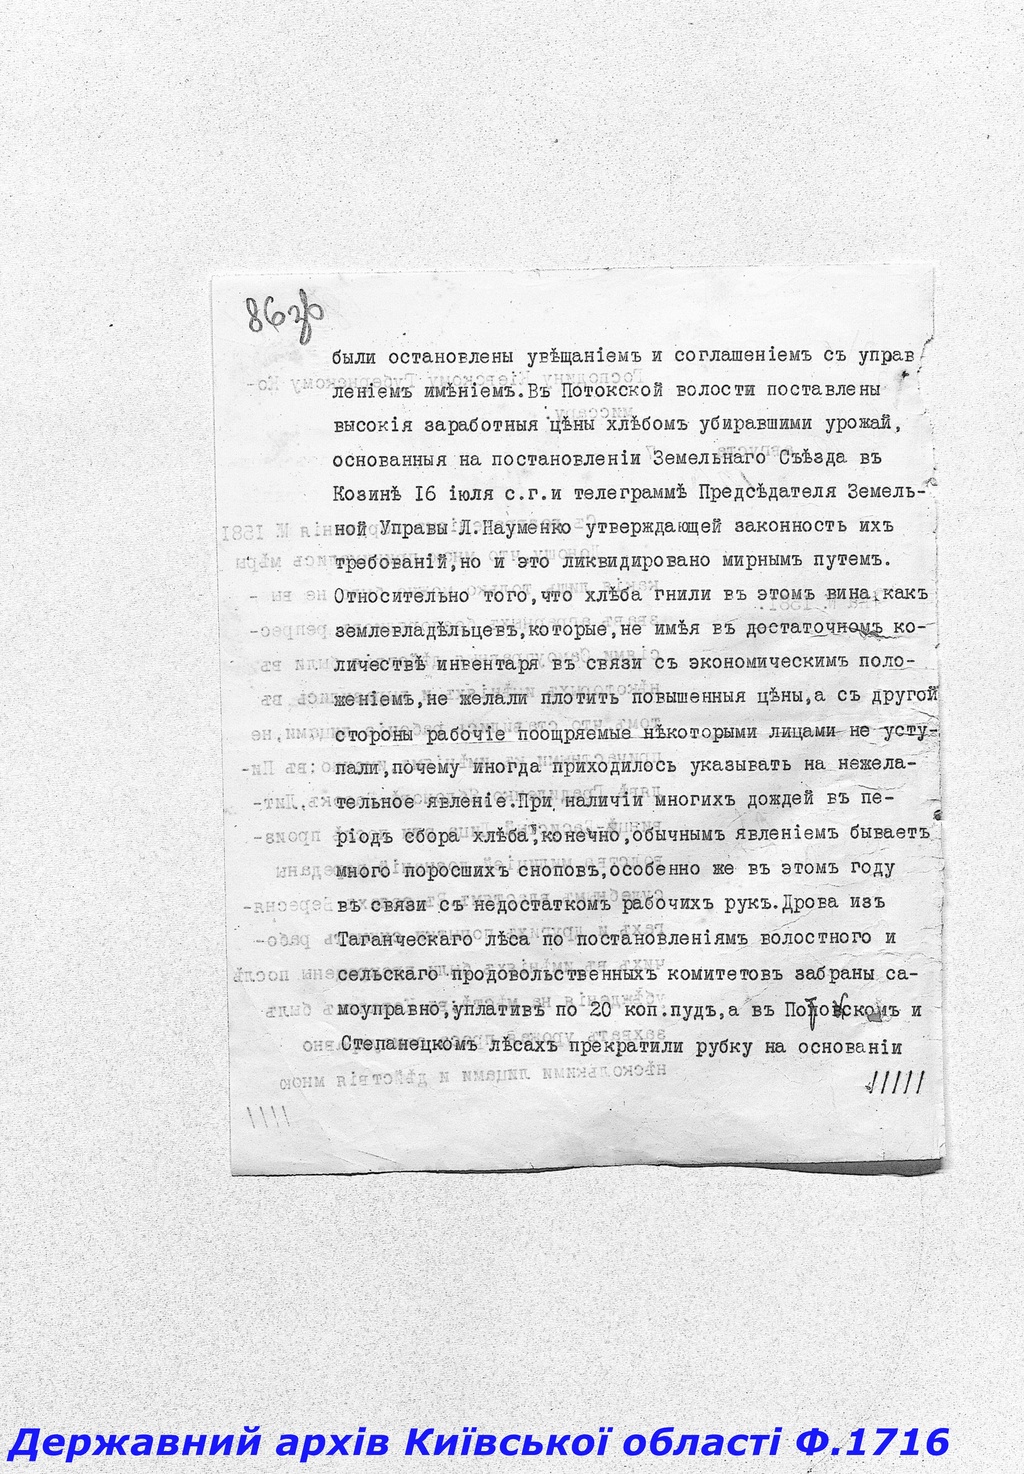 86 зв
были остановлены увѣщаніемъ и соглашеніемъ съ управ
леніемъ имѣніемъ.Въ Потокской волости поставлены
высокія заработныя цѣны хлѣбомъ убиравшими урожай,
основанныя на постановленіи Земельнаго Съѣзда въ
Козинѣ 16 іюля с.г.и телеграммѣ Предсѣдателя Земель-
ной Управы Л.Науменко утверждающей законность ихъ
требованій,но и это ликвидировано мирнымъ путемъ.
Относительно того,что хлѣба гнили въ этомъ вина,какъ
землевладѣльцевъ,которые,не имѣя въ достаточномъ ко-
личествѣ инвентаря въ связи съ экономическимъ поло-
женіемъ,не желали плотить повышенныя цѣны,а съ другой
стороны рабочіе поощряемые нѣкоторыми лицами не усту-
пали,почему иногда приходилось указывать на нежела-
тельное явленіе.При наличіи многихъ дождей въ пе-
ріодъ сбора хлѣба,конечно,обычнымъ явленіемъ бываетъ
много поросшихъ сноповъ,особенно же въ этомъ году
въ связи съ недостаткомъ рабочихъ рукъ.Дрова изъ
Таганческаго лѣса по постановленіямъ волостного и
сельскаго продовольственныхъ комитетовъ забраны са-
моуправно,уплативъ по 20 коп.пудъ,а въ Потокскомъ и
Степанецкомъ лѣсахъ прекратили рубку на основаніи
/////
Державний архів Київської області Ф.1716